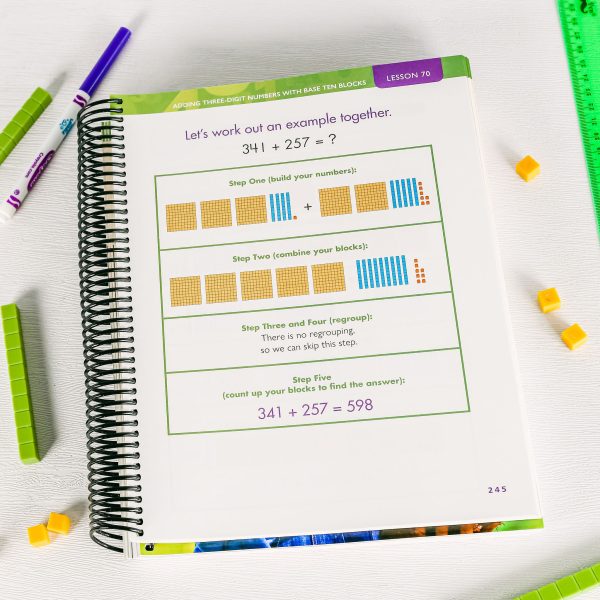 ADDING THREE-DIGIT NUMBERS WITH BASE TEN BLOCKS
LESSON 70
Let's work out an example together.
341 + 257 = ?
Step One (build your numbers):
+
Step Two (combine your blocks):
Step Three and Four (regroup):
There is no regrouping,
so we can skip this step.
Step Five
(count up your blocks to find the answer):
341 + 257 = 598
245